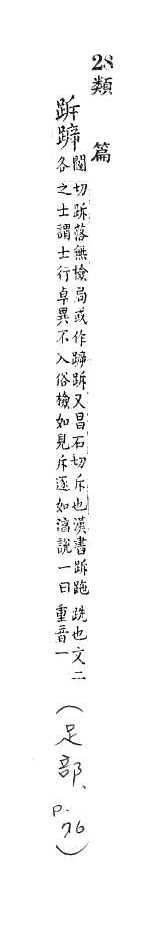 28
類篇
跅蹄
闥切跅落無檢局或作蹄跅又昌石切斥也漢書跅跑跣也文二
各之士謂士行卓異不入俗檢如見斥逐如淳說一曰重音一
(足部、p.76)